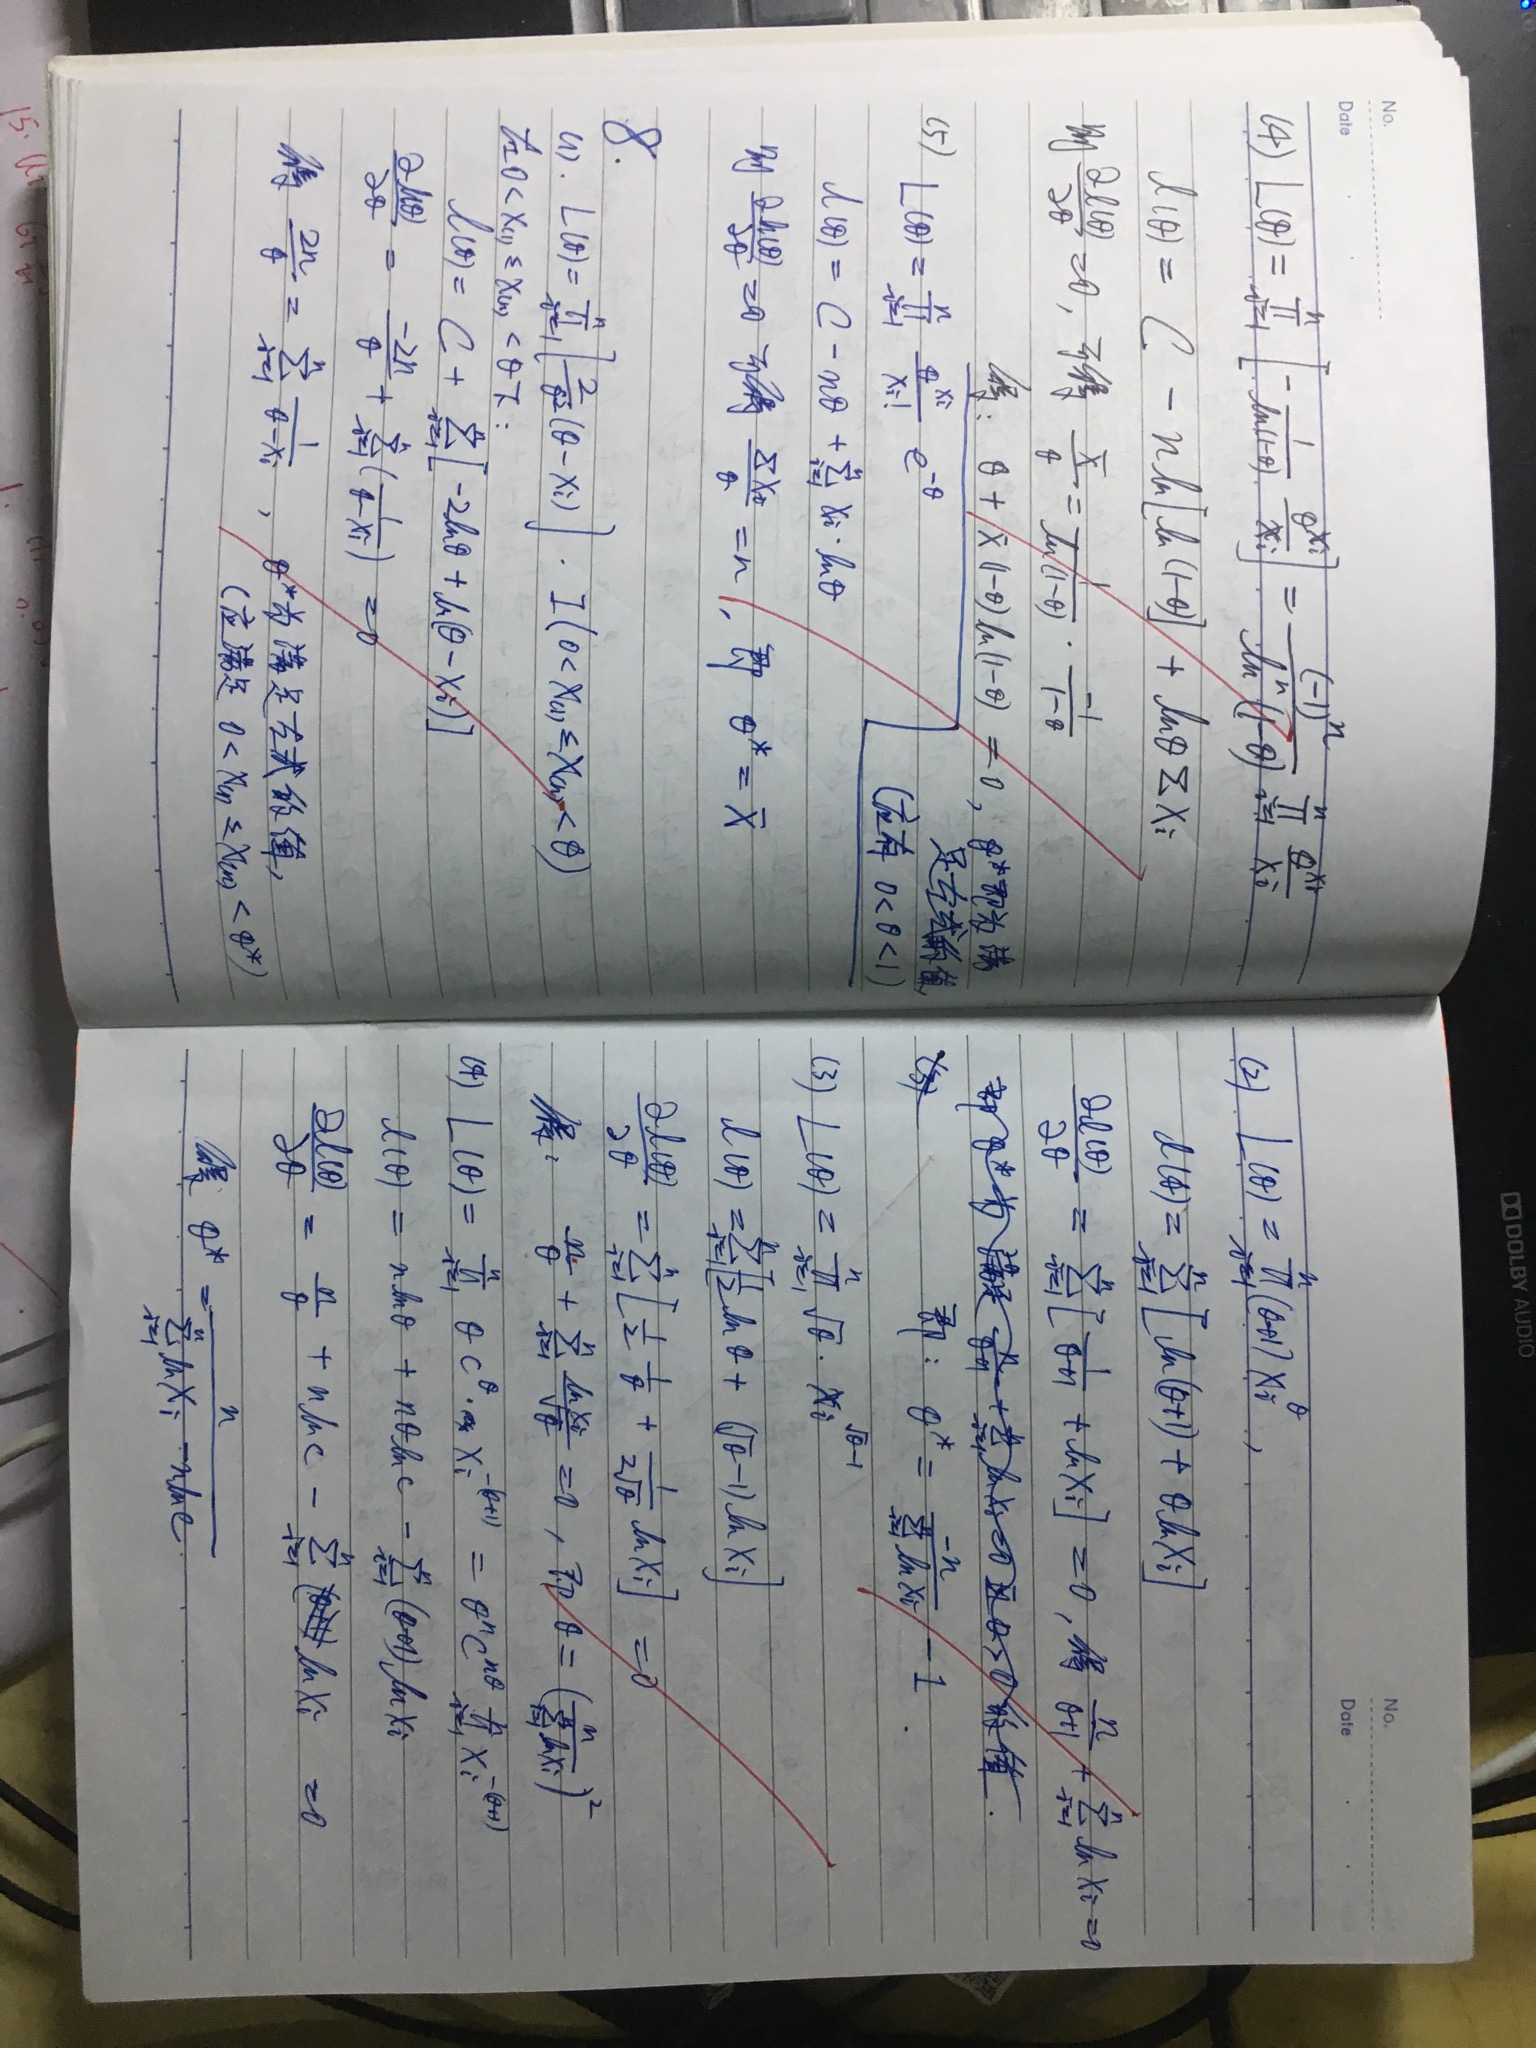 No.
Date
(4) L(θ) = ∏_{i=1}^{n} [ -1/ln(1-θ) · θ^{xi}/xi ] = (-1)^n / ln^n(1-θ) ∏_{i=1}^{n} θ^{xi}/xi
l(θ) = C - n ln[ln(1-θ)] + lnθ Σxi
则 ∂l(θ)/∂θ = 0, 可得 x̄/θ = 1/ln(1-θ) · -1/(1-θ)
得: θ + x̄(1-θ)ln(1-θ) = 0, θ* 即为满
足方式的值
(应有 0<θ<1)
(5) L(θ) = ∏_{i=1}^{n} θ^{xi}/xi! e^{-θ}
l(θ) = C - nθ + Σ_{i=1}^{n} xi · lnθ
则 ∂l(θ)/∂θ = 0 可得 Σxi/θ = n, 即 θ* = x̄
8.
(1). L(θ) = ∏_{i=1}^{n} [ 2/θ² (θ - xi) ] · I(0 < x(1) ≤ x(n) < θ)
在 0 < x(1) ≤ x(n) < θ 下:
l(θ) = C + Σ_{i=1}^{n} [ -2lnθ + ln(θ - xi) ]
∂l(θ)/∂θ = -2n/θ + Σ_{i=1}^{n} (1/(θ-xi)) = 0
得 2n/θ = Σ_{i=1}^{n} 1/(θ-xi), θ* 为满足方式的值,
(应满足 0 < x(1) ≤ x(n) < θ*)
No.
Date
(2) L(θ) = ∏_{i=1}^{n} (θ+1) xi^θ,
l(θ) = Σ_{i=1}^{n} [ ln(θ+1) + θ lnxi ]
∂l(θ)/∂θ = Σ_{i=1}^{n} [ 1/(θ+1) + lnxi ] = 0, 得 n/(θ+1) + Σ_{i=1}^{n} lnxi = 0
即 θ* 为满足 n/(θ+1) + Σ_{i=1}^{n} lnxi = 0 且 θ>0 的值.
即: θ* = -n/Σ_{i=1}^{n} lnxi - 1.
(3)
(3) L(θ) = ∏_{i=1}^{n} √θ · xi^{√θ-1}
l(θ) = Σ_{i=1}^{n} [ 1/2 lnθ + (√θ-1) lnxi ]
∂l(θ)/∂θ = Σ_{i=1}^{n} [ 1/2 · 1/θ + 1/(2√θ) lnxi ] = 0
得: n/θ + Σ_{i=1}^{n} lnxi/√θ = 0, 即 θ = (n/Σ_{i=1}^{n} lnxi)²
(4) L(θ) = ∏_{i=1}^{n} θ c^θ · xi^{-(θ+1)} = θ^n c^{nθ} ∏_{i=1}^{n} xi^{-(θ+1)}
l(θ) = n lnθ + nθ lnc - Σ_{i=1}^{n} (θ+1) lnxi
∂l(θ)/∂θ = n/θ + n lnc - Σ_{i=1}^{n} lnxi = 0
得 θ* = n / (Σ_{i=1}^{n} lnxi - n lnc)
DOLBY AUDIO